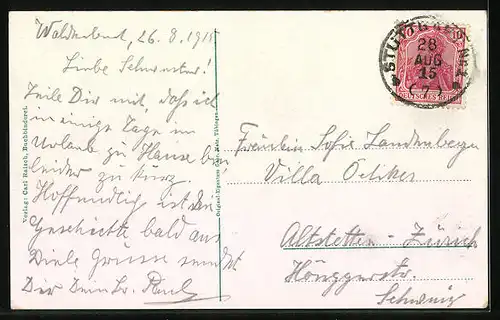 Waldenbuch, 26. 8. 1915
Liebe Schwester!
Teile Dir mit, daß ich
in einige Tage im
Urlaub zu Hause bin
leider zu kurz.
Hoffendlich ist die
Geschichte bald aus
Viele Grüsse sendet
Dir Dein Br. Paul
Verlag: Carl Raisch, Buchbinderei.
STUTTGART
26
AUG
15
DEUTSCHES REICH
10
Fräulein Sofie Landenberger
Villa Oetiker
Altstetten - Zürich
Hönggerstr.
Schweiz